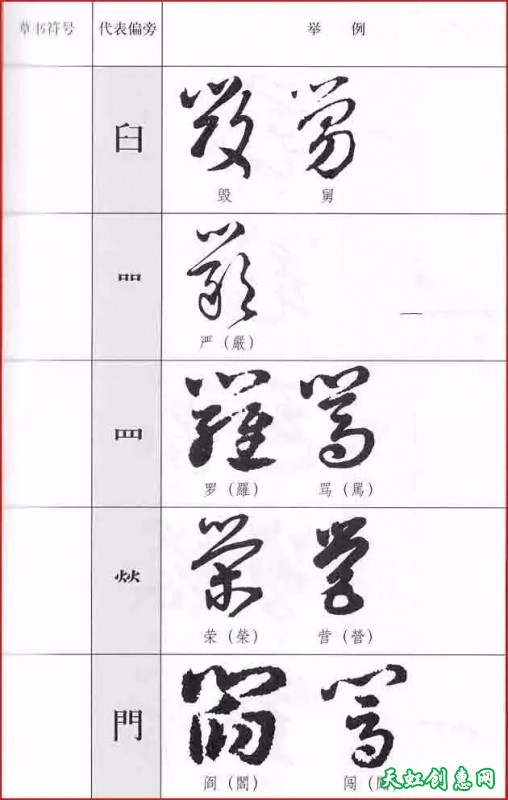 草书符号 代表偏旁 举例
臼
毁 舅
吅
严（嚴）
罒
罗（羅） 骂（駡）
炏
荣（榮） 营（營）
門
阎（閻） 闯（闖
天虹创惠网